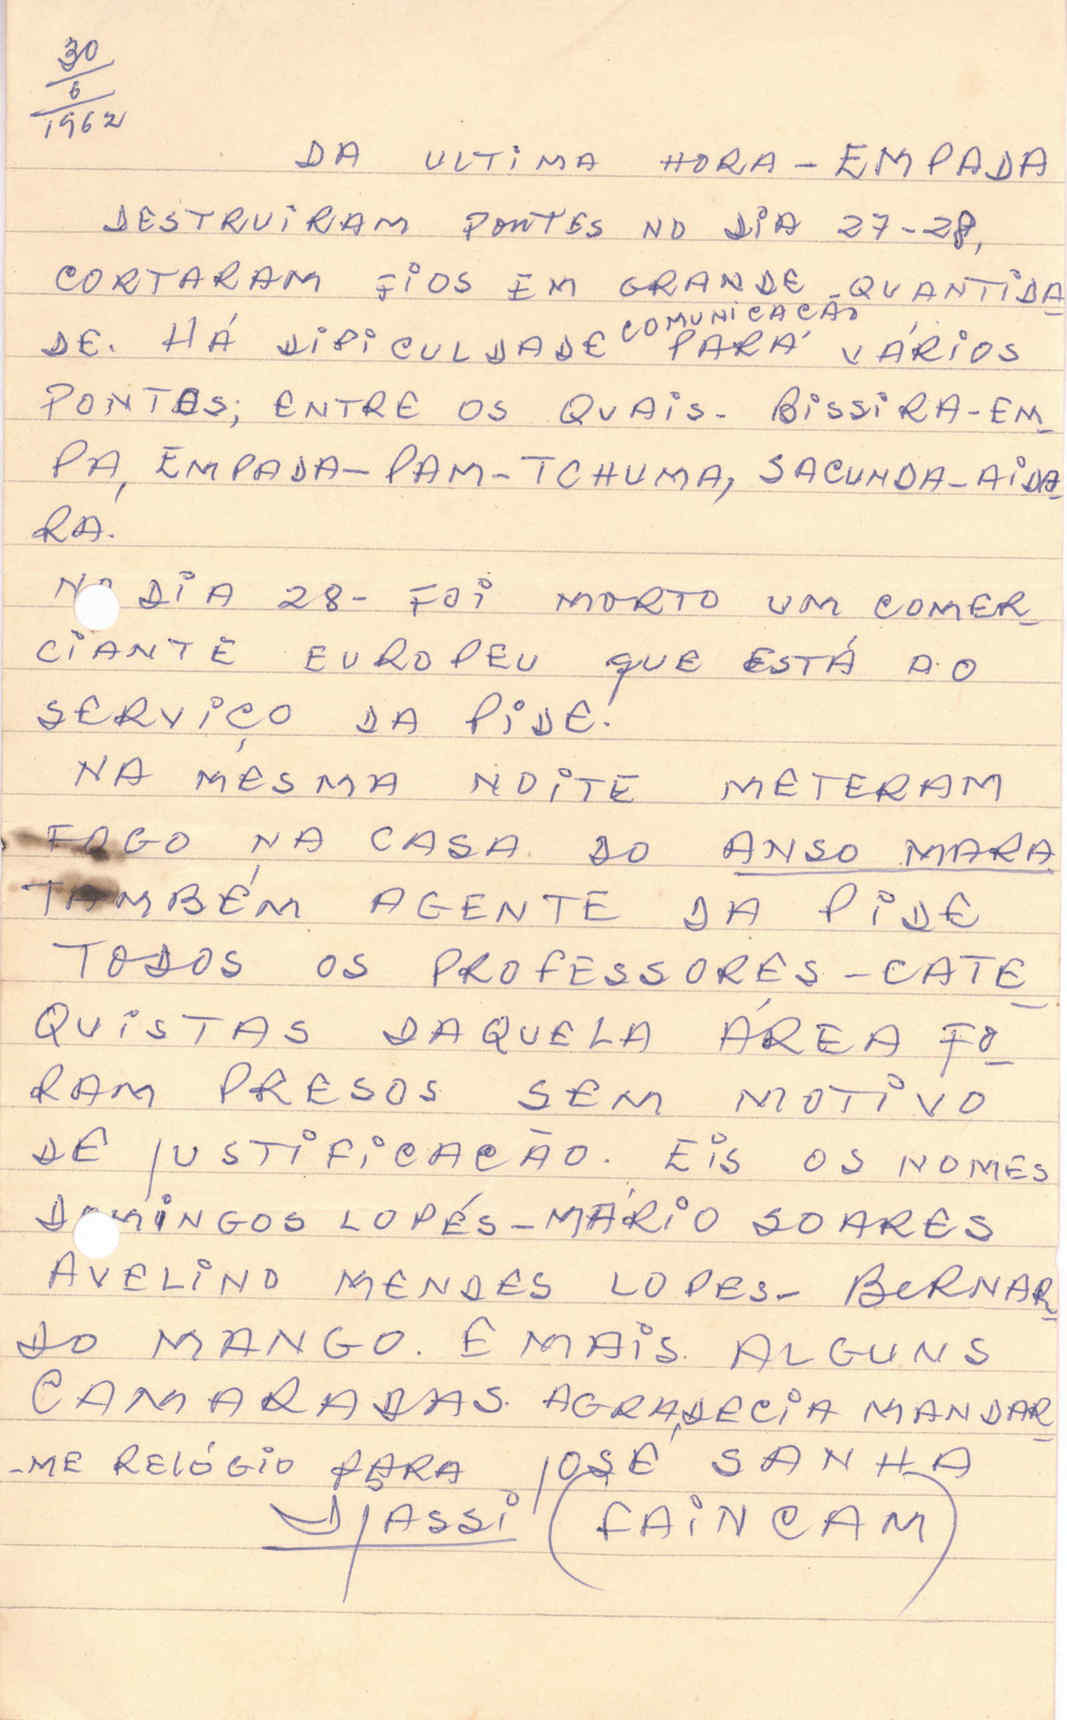 30
6
1962
DA ULTIMA HORA - EMPADA
DESTRUIRAM PONTES NO DIA 27-28,
CORTARAM FIOS EM GRANDE QUANTIDA-
COMUNICAÇÃO
DE. HÁ DIFICULDADE PARA VÁRIOS
PONTOS; ENTRE OS QUAIS - BISSIRA-EM-
PA, EMPADA-PAM-TCHUMA, SACUNDA-AIDA-
RA.
NO DIA 28- FOI MORTO UM COMER-
CIANTE EUROPEU QUE ESTÁ AO
SERVIÇO DA PIDE.
NA MESMA NOITE METERAM
FOGO NA CASA DO ANSO MARA
TAMBÉM AGENTE DA PIDE
TODOS OS PROFESSORES - CATE-
QUISTAS DAQUELA ÁREA FO-
RAM PRESOS SEM MOTIVO
DE JUSTIFICAÇÃO. EIS OS NOMES
DOMINGOS LOPÉS - MÁRIO SOARES
AVELINO MENDES LOPES - BERNAR-
DO MANGO. E MAIS ALGUNS
CAMARADAS. AGRADECIA MANDAR-
-ME RELÓGIO PARA JOSÉ SANHA
DJASSI (FAINCAM)